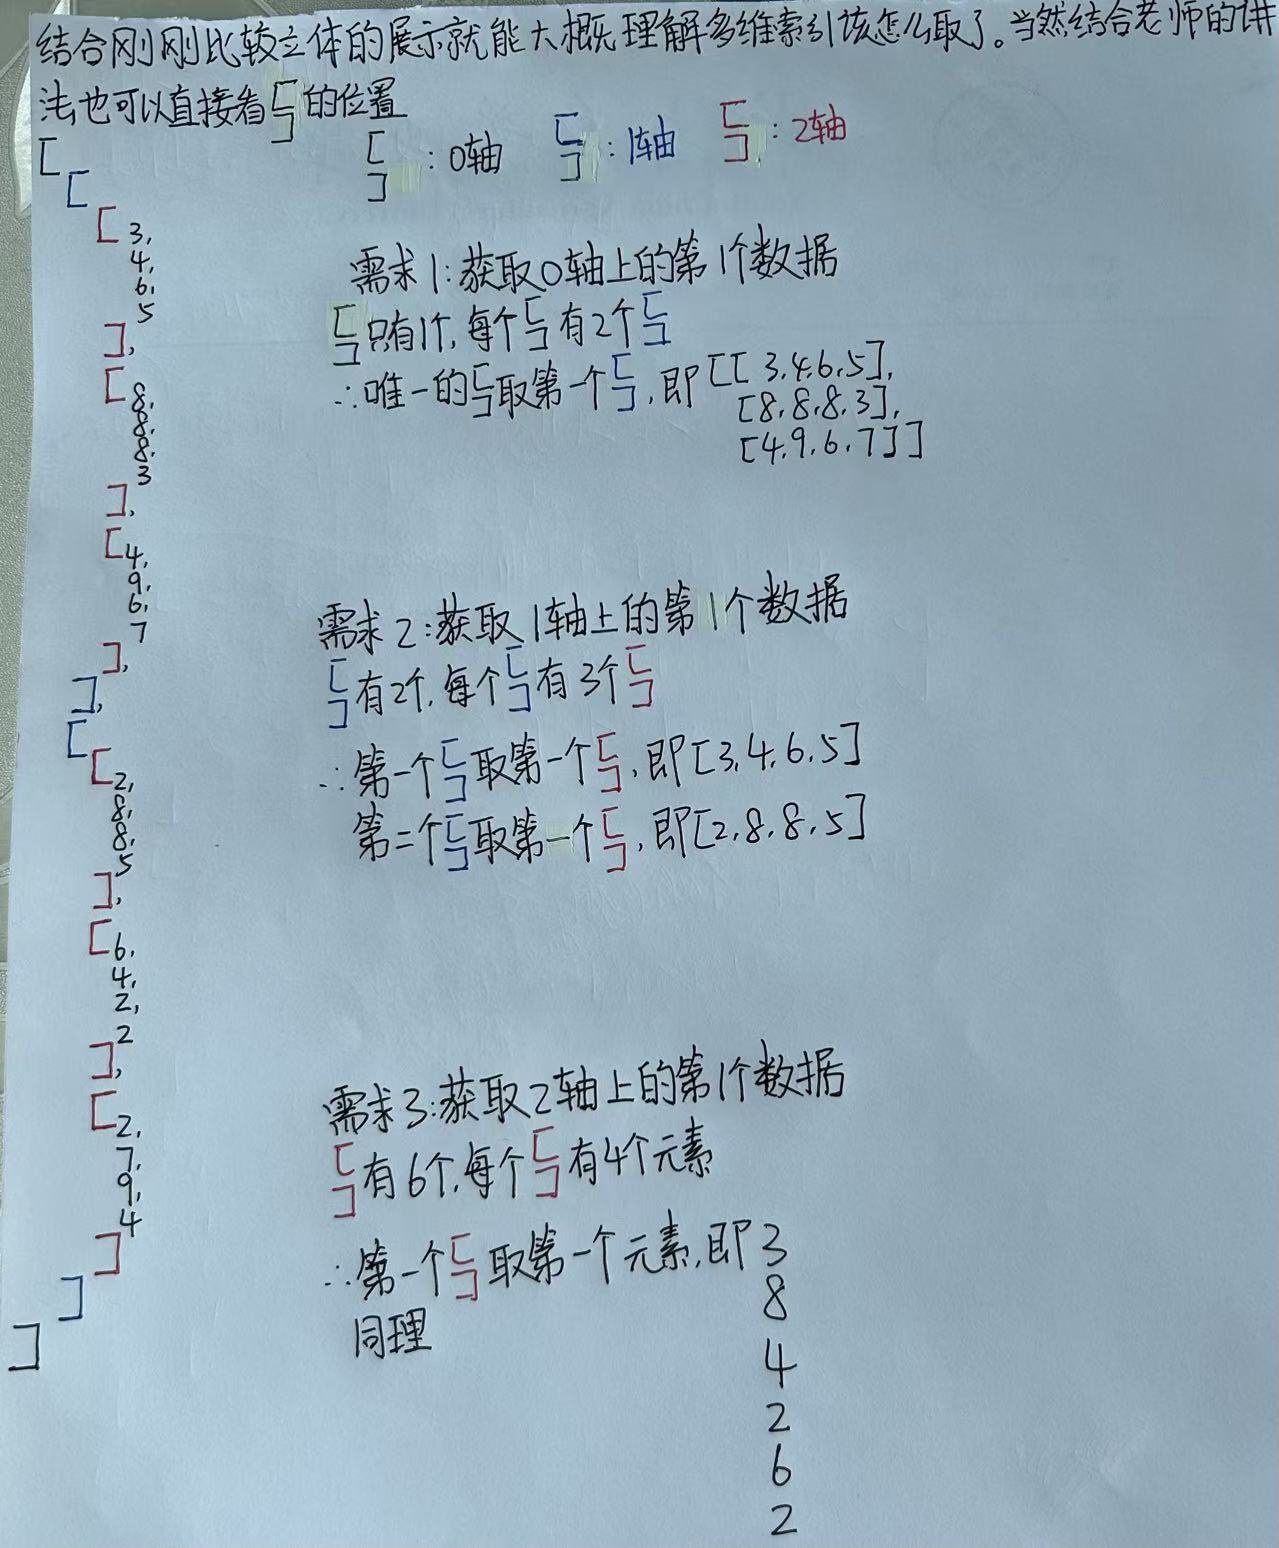 结合刚刚比较立体的展示就能大概理解多维索引该怎么取了。当然结合老师的讲
法也可以直接看[]的位置
[] : 0轴 [] : 1轴 [] : 2轴
[
[
[3,
4,
6,
5
],
[8,
8,
8,
3
],
[4,
9,
6,
7
],
],
[
[2,
8,
8,
5
],
[6,
4,
2,
2
],
[2,
7,
9,
4
]
]
]
需求1:获取0轴上的第1个数据
[]只有1个,每个[]有2个[]
∴唯一的[]取第一个[],即[[3,4,6,5],
[8,8,8,3],
[4,9,6,7]]
需求2:获取1轴上的第1个数据
[]有2个,每个[]有3个[]
∴第一个[]取第一个[],即[3,4,6,5]
第二个[]取第一个[],即[2,8,8,5]
需求3:获取2轴上的第1个数据
[]有6个,每个[]有4个元素
∴第一个[]取第一个元素,即3
同理 8
4
2
6
2